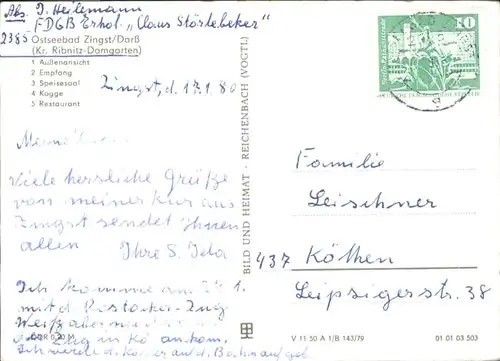 Abs. I. Heilemann
FDGB Erhol. "Claus Störtebeker"
2385 Ostseebad Zingst/Darß
(Kr. Ribnitz-Damgarten)
1 Außenansicht
2 Empfang
3 Speisesaal
4 Kogge
5 Restaurant
Zingst, d. 17.1.80
Viele herzliche Grüße
von meiner Kur aus
Zingst sendet Ihnen
allen
Ihre S. Ida
Ich komme am 24.1.
mit d. Rostocker-Zug
Weiß aber
Zug in Kö ankom.
Ich werde d. Koffer auf d. Bahn auf geb
BILD UND HEIMAT · REICHENBACH (VOGTL)
10
Familie
Leischner
437 Köthen
Leipzigerstr. 38
V 11 50 A 1/B 143/79
01 01 03 503